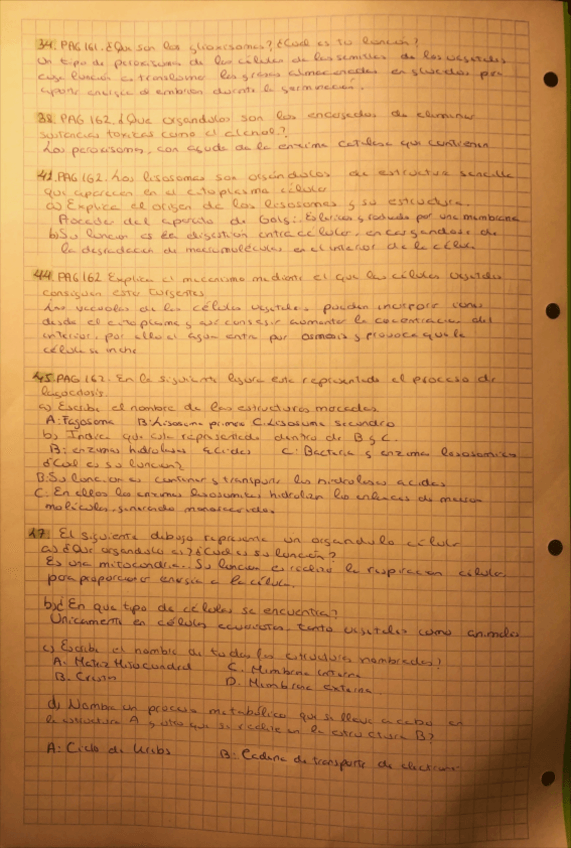 34. PAG 161. ¿Que son los glioxisomas? ¿Cual es su funcion?
Un tipo de peroxisomas de las células de las semillas de los vegetales
cuya función es transformar las grasas almacenadas en glucidos para
aporte energia al embrion durante la germinación.
38. PAG 162. ¿Que organdulos son los encargados de eliminar
sustancias toxicas como el etanol?
Los peroxisomas, con ayuda de la enzima catalasa que contienen
41. PAG 162. Los lisosomas son orgándulos de estructura sencilla
que aparecen en el citoplasma célular
a) Explica el origen de los lisosomas y su estructura.
Procede del aparato de Golgi. Esferica y rodeada por una membrana
b) Su función es la digestion intracelular, encargandose de
la degradacion de macromoléculas en el interior de la célula
44. PAG 162 Explica el mecanismo mediante el que las células vegetales
consiguen estar turgentes
Las vacuolas de las células vegetales pueden incorporar iones
desde el citoplasma y asi conseguir aumentar la concentracion del
interior, por ello el agua entra por osmosis y provoca que la
célula se inche
45. PAG 162. En la siguiente figura esta representado el proceso de
fagocitosis.
a) Escribe el nombre de las estructuras marcadas
A: Fagosoma B: Lisosoma primario C: Lisosoma secundario
b) Indica que esta representado dentro de B y C.
B: enzimas hidrolasas acidas C: Bacteria y enzimas lisosomicas
¿Cual es su funcion?
B: Su funcion es contener y transportar las hidrolasas acidas
C: En ellos las enzimas lisosomicas hidrolizan los enlaces de macro
moléculas, generando monomeros.
47 El siguiente dibujo representa un organdulo célular
a) ¿Que organdulo es? ¿Cual es su función?
Es una mitocondria. Su funcion es realizar la respiracion célular
para proporcionar energia a la célula.
b) ¿En que tipo de células se encuentra?
Unicamente en células eucariotas, tanto vegetales como animales
c) Escribe el nombre de todas las estructuras nombradas?
A: Matriz Mitocondrial C. Membrana interna
B. Cresta D. Membrana externa
d) Nombra un proceso metabólico que se lleve a cabo en
la estructura A y otro que se realice en la estructura B?
A: Ciclo de Krebs B: Cadena de transporte de electrones